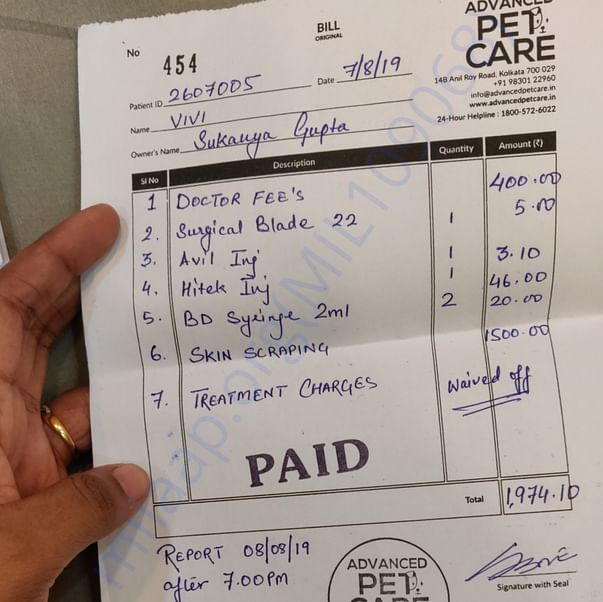 ADVANCED
PET
CARE
14B Anil Roy Road, Kolkata 700 029
+91 98301 22960
info@advancedpetcare.in
www.advancedpetcare.in
24-Hour Helpline : 1800-572-6022
BILL
ORIGINAL
No 454
Date 7/8/19
Patient ID 2607005
Name VIVI
Owner's Name Sukanya Gupta
Sl No Description Quantity Amount (₹)
1 DOCTOR FEE'S 400.00
2. Surgical Blade 22 1 5.00
3. Avil Inj 1 3.10
4. Hitek Inj 1 46.00
5. BD Syringe 2ml 2 20.00
6. SKIN SCRAPING 1500.00
7. TREATMENT CHARGES Waived off
PAID
Total 1,974.10
REPORT 08/08/19
after 7.00PM
ADVANCED
PET
CARE
Signature with Seal